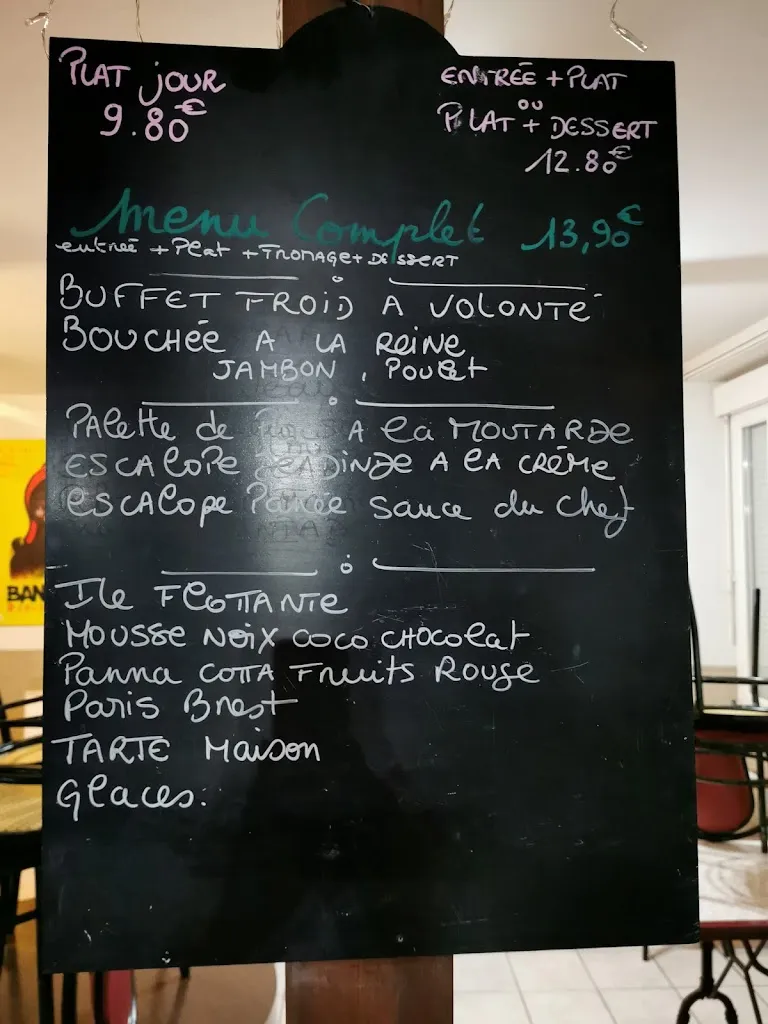 PLAT JOUR
9.80€
ENTRÉE + PLAT
OU
PLAT + DESSERT
12.80€
Menu Complet 13,90€
entrée + Plat + Fromage + DESSERT
BUFFET FROID A VOLONTÉ
BOUCHÉE A LA REINE
JAMBON, Poulet
Palette de A la MOUTARDE
ESCALOPE DINDE A LA CRÉME
escalope Panée sauce du chef
Ile FLOTTANTE
MOUSSE NOIX COCO CHOCOLAT
Panna COTTA Fruits Rouge
Paris Brest
TARTE Maison
Glaces.
BAN